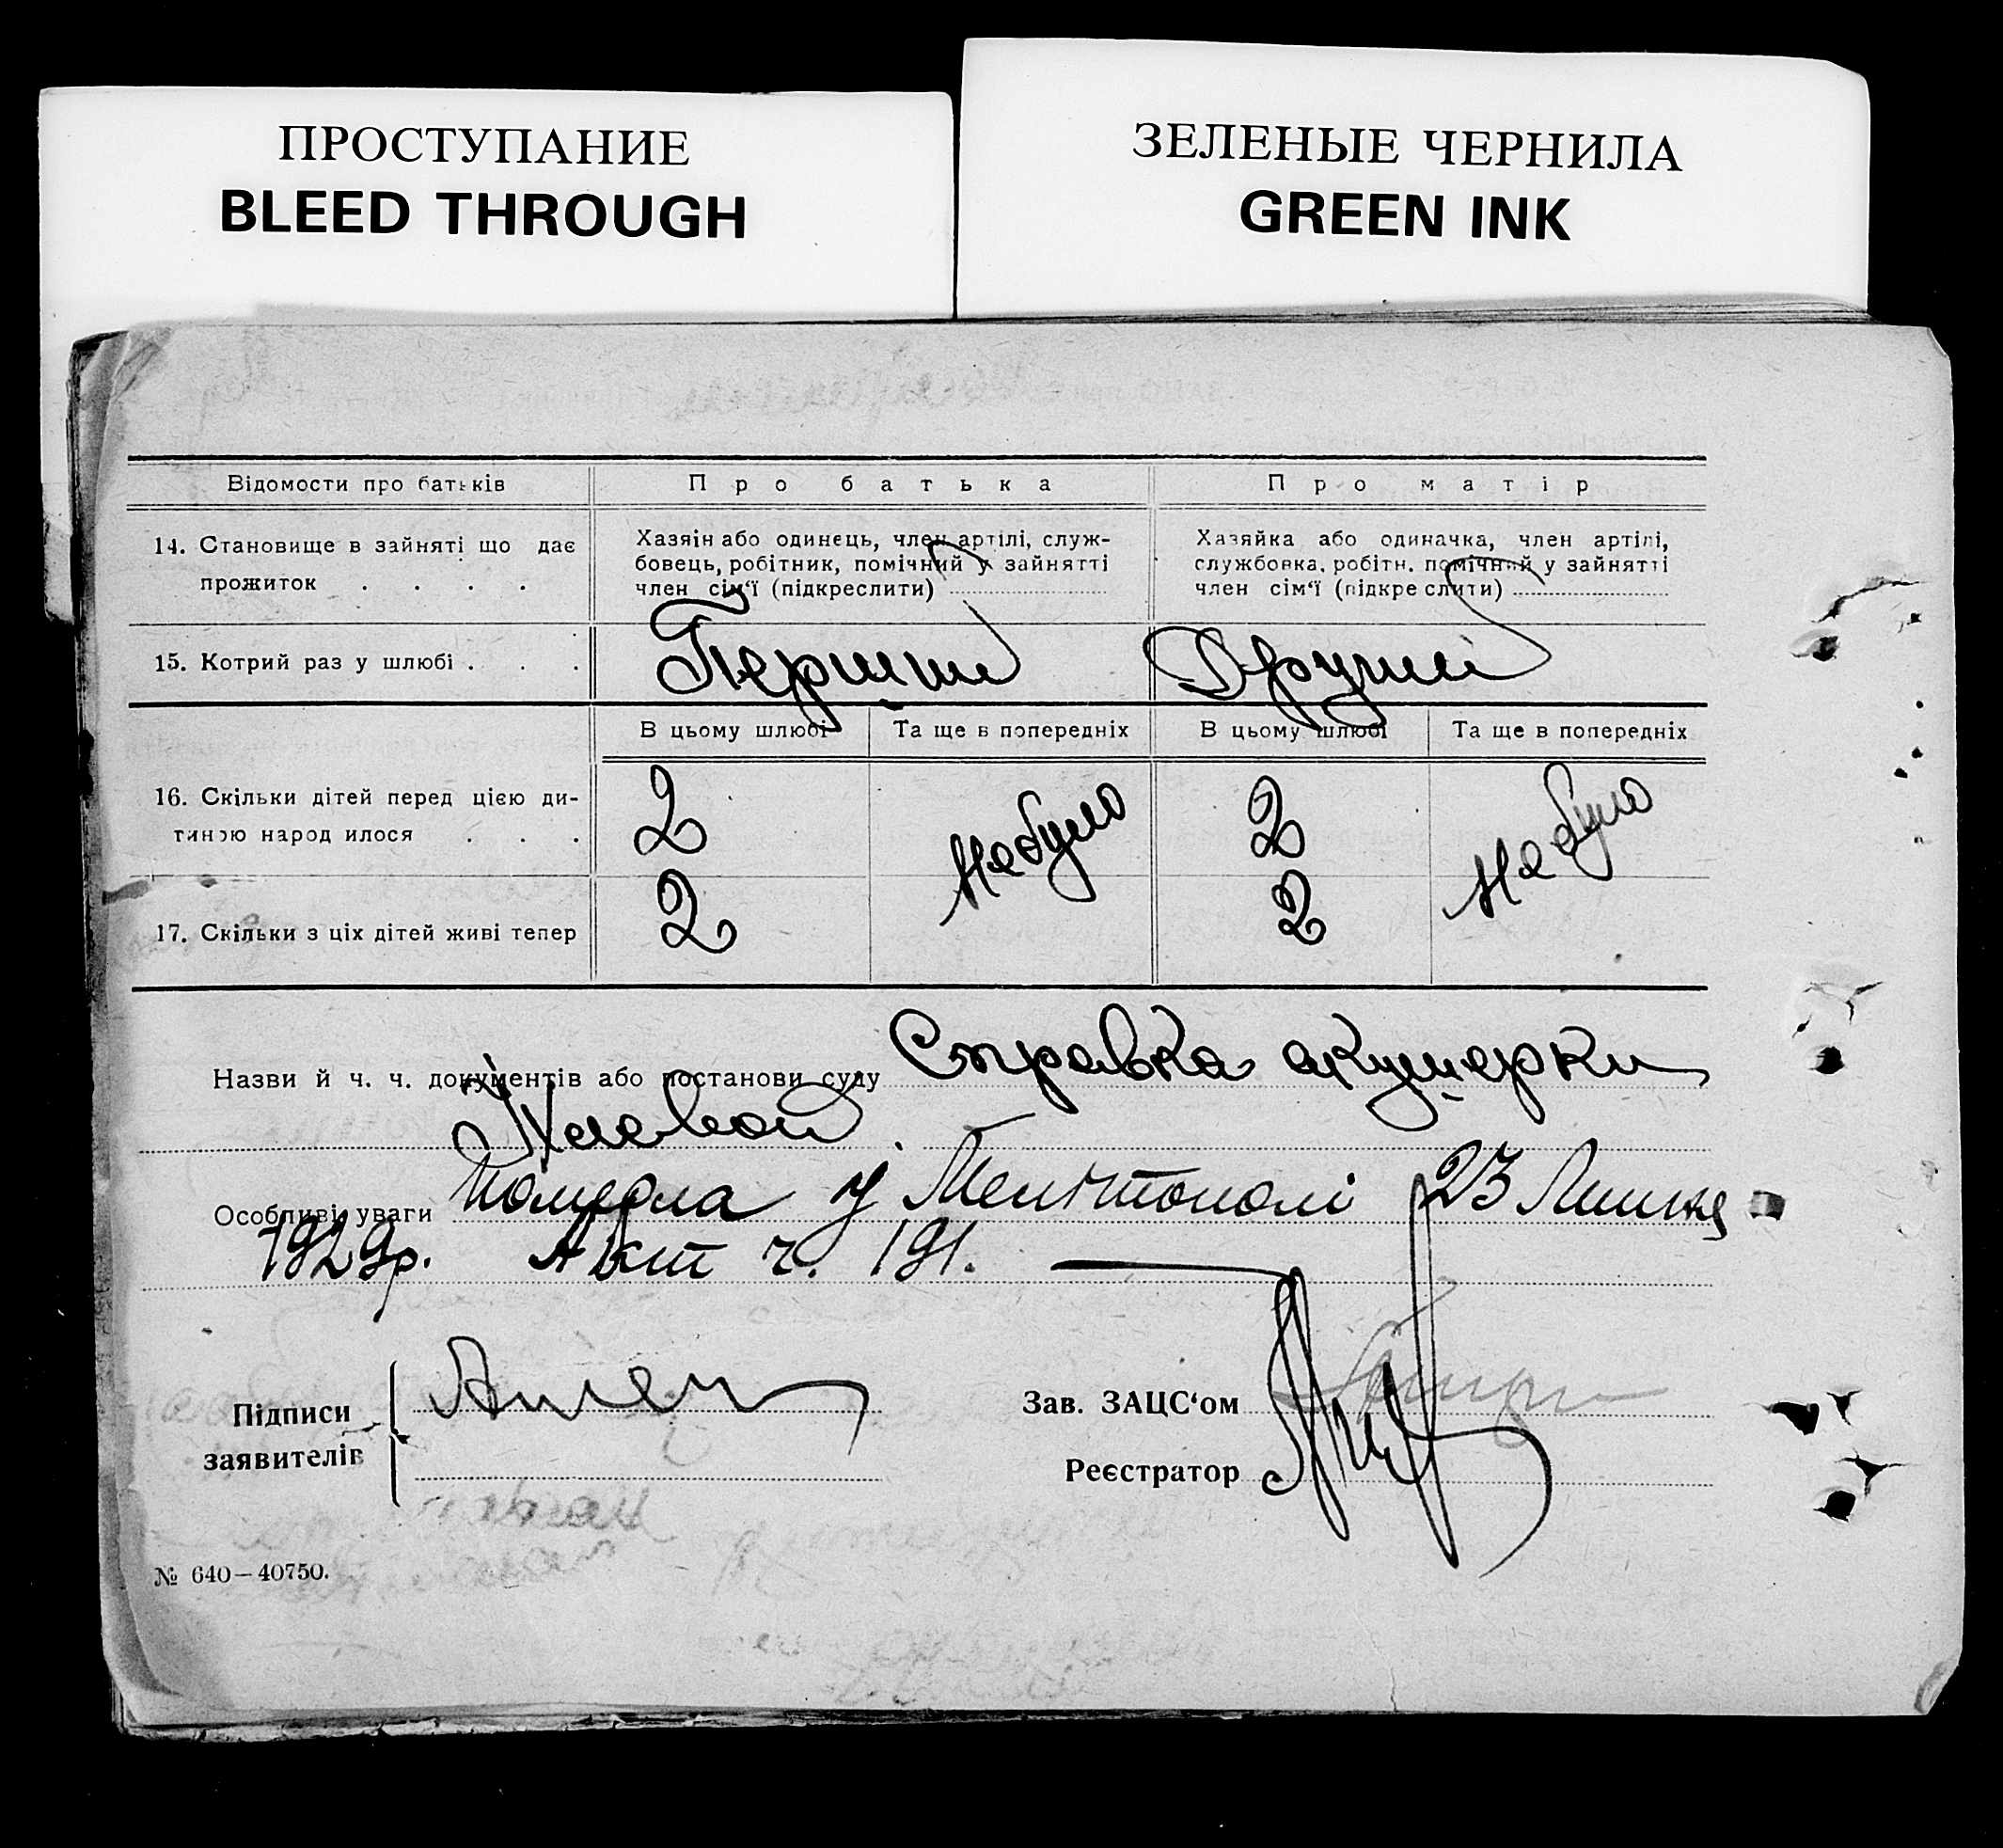 ПРОСТУПАНИЕ
BLEED THROUGH
ЗЕЛЕНЫЕ ЧЕРНИЛА
GREEN INK
Відомости про батьків Про батька Про матір
14. Становище в зайняті що дає прожиток . . . .
Хазяін або одинець, член артілі, служ-
бовець, робітник, помічний у зайнятті
член сім‘ї (підкреслити)
Хазяйка або одиначка, член артілі,
службовка, робітн. помічний у зайнятті
член сім‘ї (підкреслити)
15. Котрий раз у шлюбі . . . Перший Другий
В цьому шлюбі Та ще в попередніх В цьому шлюбі Та ще в попередніх
16. Скільки дітей перед цією ди-
тиною народилося . . . 2 Не було 2 Не було
17. Скільки з ціх дітей живі тепер 2 2
Назви й ч. ч. документів або постанови суду Справка акушерки
Особливі уваги Померла у Мелітополі 23 Липня
1929р. Акт ч. 191.
Підписи
заявителів
Зав. ЗАЦС‘ом
Реєстратор
№ 640—40750.